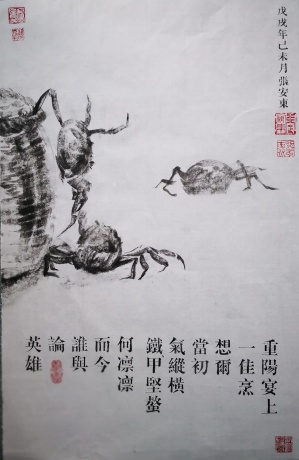 戊戌年己未月張安東
重陽宴上
一佳烹
想爾
當初
氣縱橫
鐵甲堅螯
何凛凛
而今
誰與
論
英雄